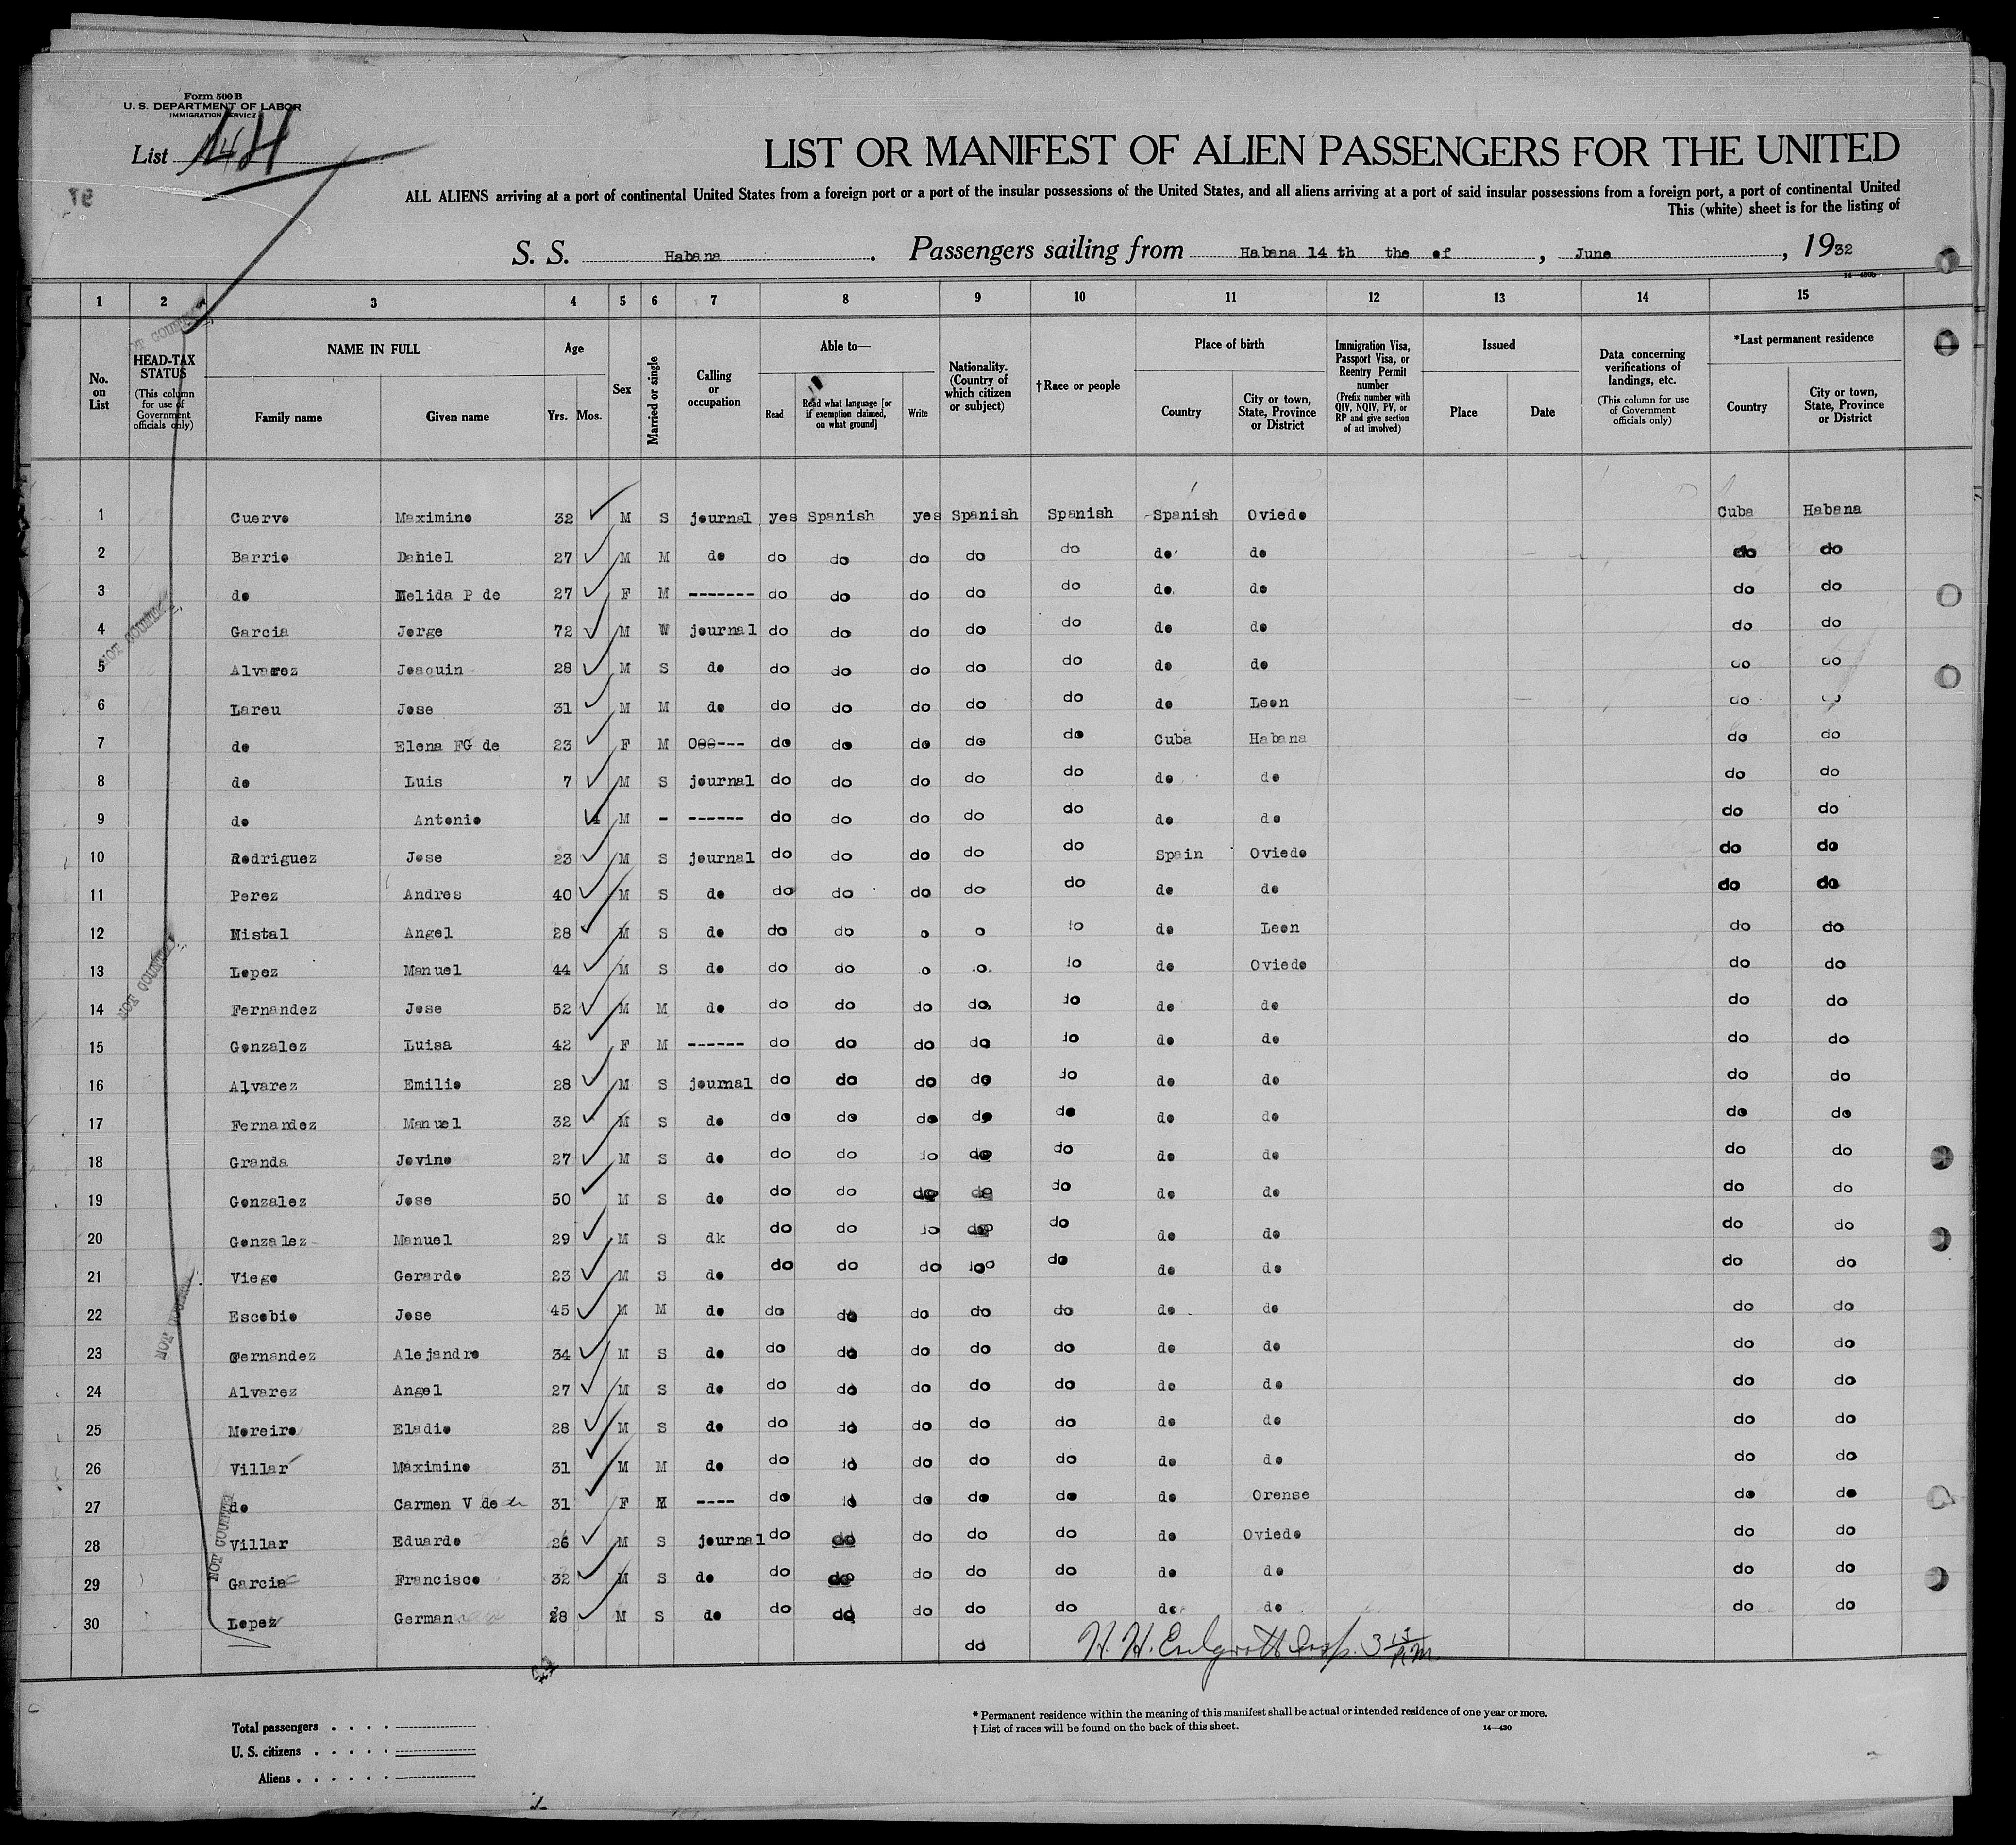 Form 500 B
U. S. DEPARTMENT OF LABOR
IMMIGRATION SERVICE
List 14
LIST OR MANIFEST OF ALIEN PASSENGERS FOR THE UNITED
ALL ALIENS arriving at a port of continental United States from a foreign port or a port of the insular possessions of the United States, and all aliens arriving at a port of said insular possessions from a foreign port, a port of continental United
This (white) sheet is for the listing of
S. S. Habana. Passengers sailing from Habana 14 th the of, June, 1932
1 2 3 4 5 6 7 8 9 10 11 12 13 14 15
No. on List
HEAD-TAX STATUS (This column for use of Government officials only)
NAME IN FULL Family name Given name
Age Yrs. Mos.
Sex
Married or single
Calling or occupation
Able to— Read Read what language [or if exemption claimed, on what ground] Write
Nationality. (Country of which citizen or subject)
†Race or people
Place of birth Country City or town, State, Province or District
Immigration Visa, Passport Visa, or Reentry Permit number (Prefix number with QIV, NQIV, PV, or RP and give section of act involved)
Issued Place Date
Data concerning verifications of landings, etc. (This column for use of Government officials only)
*Last permanent residence Country City or town, State, Province or District
1 Cuervo Maximino 32 M S journal yes Spanish yes Spanish Spanish Spanish Oviedo Cuba Habana
2 Barrio Daniel 27 M M do do do do do do do do do do
3 do Nelida P de 27 F M ------- do do do do do do do do do
4 Garcia Jorge 72 M W journal do do do do do do do do do
5 Alvarez Joaquin 28 M S do do do do do do do do do do
6 Lareu Jose 31 M M do do do do do do do Leon do do
7 do Elena FG de 23 F M --- do do do do do Cuba Habana do do
8 do Luis 7 M S journal do do do do do do do do do
9 do Antonio 4 M - ------ do do do do do do do do do
10 Rodriguez Jose 23 M S journal do do do do do Spain Oviedo do do
11 Perez Andres 40 M S do do do do do do do do do do
12 Nistal Angel 28 M S do do do o o do do Leon do do
13 Lopez Manuel 44 M S do do do o o do do Oviedo do do
14 Fernandez Jose 52 M M do do do do do do do do do do
15 Gonzalez Luisa 42 F M ------ do do do do do do do do do
16 Alvarez Emilio 28 M S journal do do do do do do do do do
17 Fernandez Manuel 32 M S do do do do do do do do do do
18 Granda Jovino 27 M S do do do do do do do do do do
19 Gonzalez Jose 50 M S do do do do do do do do do do
20 Gonzalez Manuel 29 M S dk do do do do do do do do do
21 Viego Gerardo 23 M S do do do do do do do do do do
22 Escobio Jose 45 M M do do do do do do do do do do
23 Fernandez Alejandro 34 M S do do do do do do do do do do
24 Alvarez Angel 27 M S do do do do do do do do do do
25 Moreiro Eladio 28 M S do do do do do do do do do do
26 Villar Maximino 31 M M do do do do do do do do do do
27 do Carmen V de 31 F M ---- do do do do do do Orense do do
28 Villar Eduardo 26 M S journal do do do do do do Oviedo do do
29 Garcia Francisco 32 M S do do do do do do do do do do
30 Lopez German 28 M S do do do do do do do do do do
do H. H. Insp. 3 15 P.M.
NOT COUNTED
NOT COUNTED
NOT COUNTED
NOT COUNTED
NOT COUNTED
Total passengers . . . .
U. S. citizens . . . . .
Aliens . . . . . .
* Permanent residence within the meaning of this manifest shall be actual or intended residence of one year or more.
† List of races will be found on the back of this sheet. 14—430